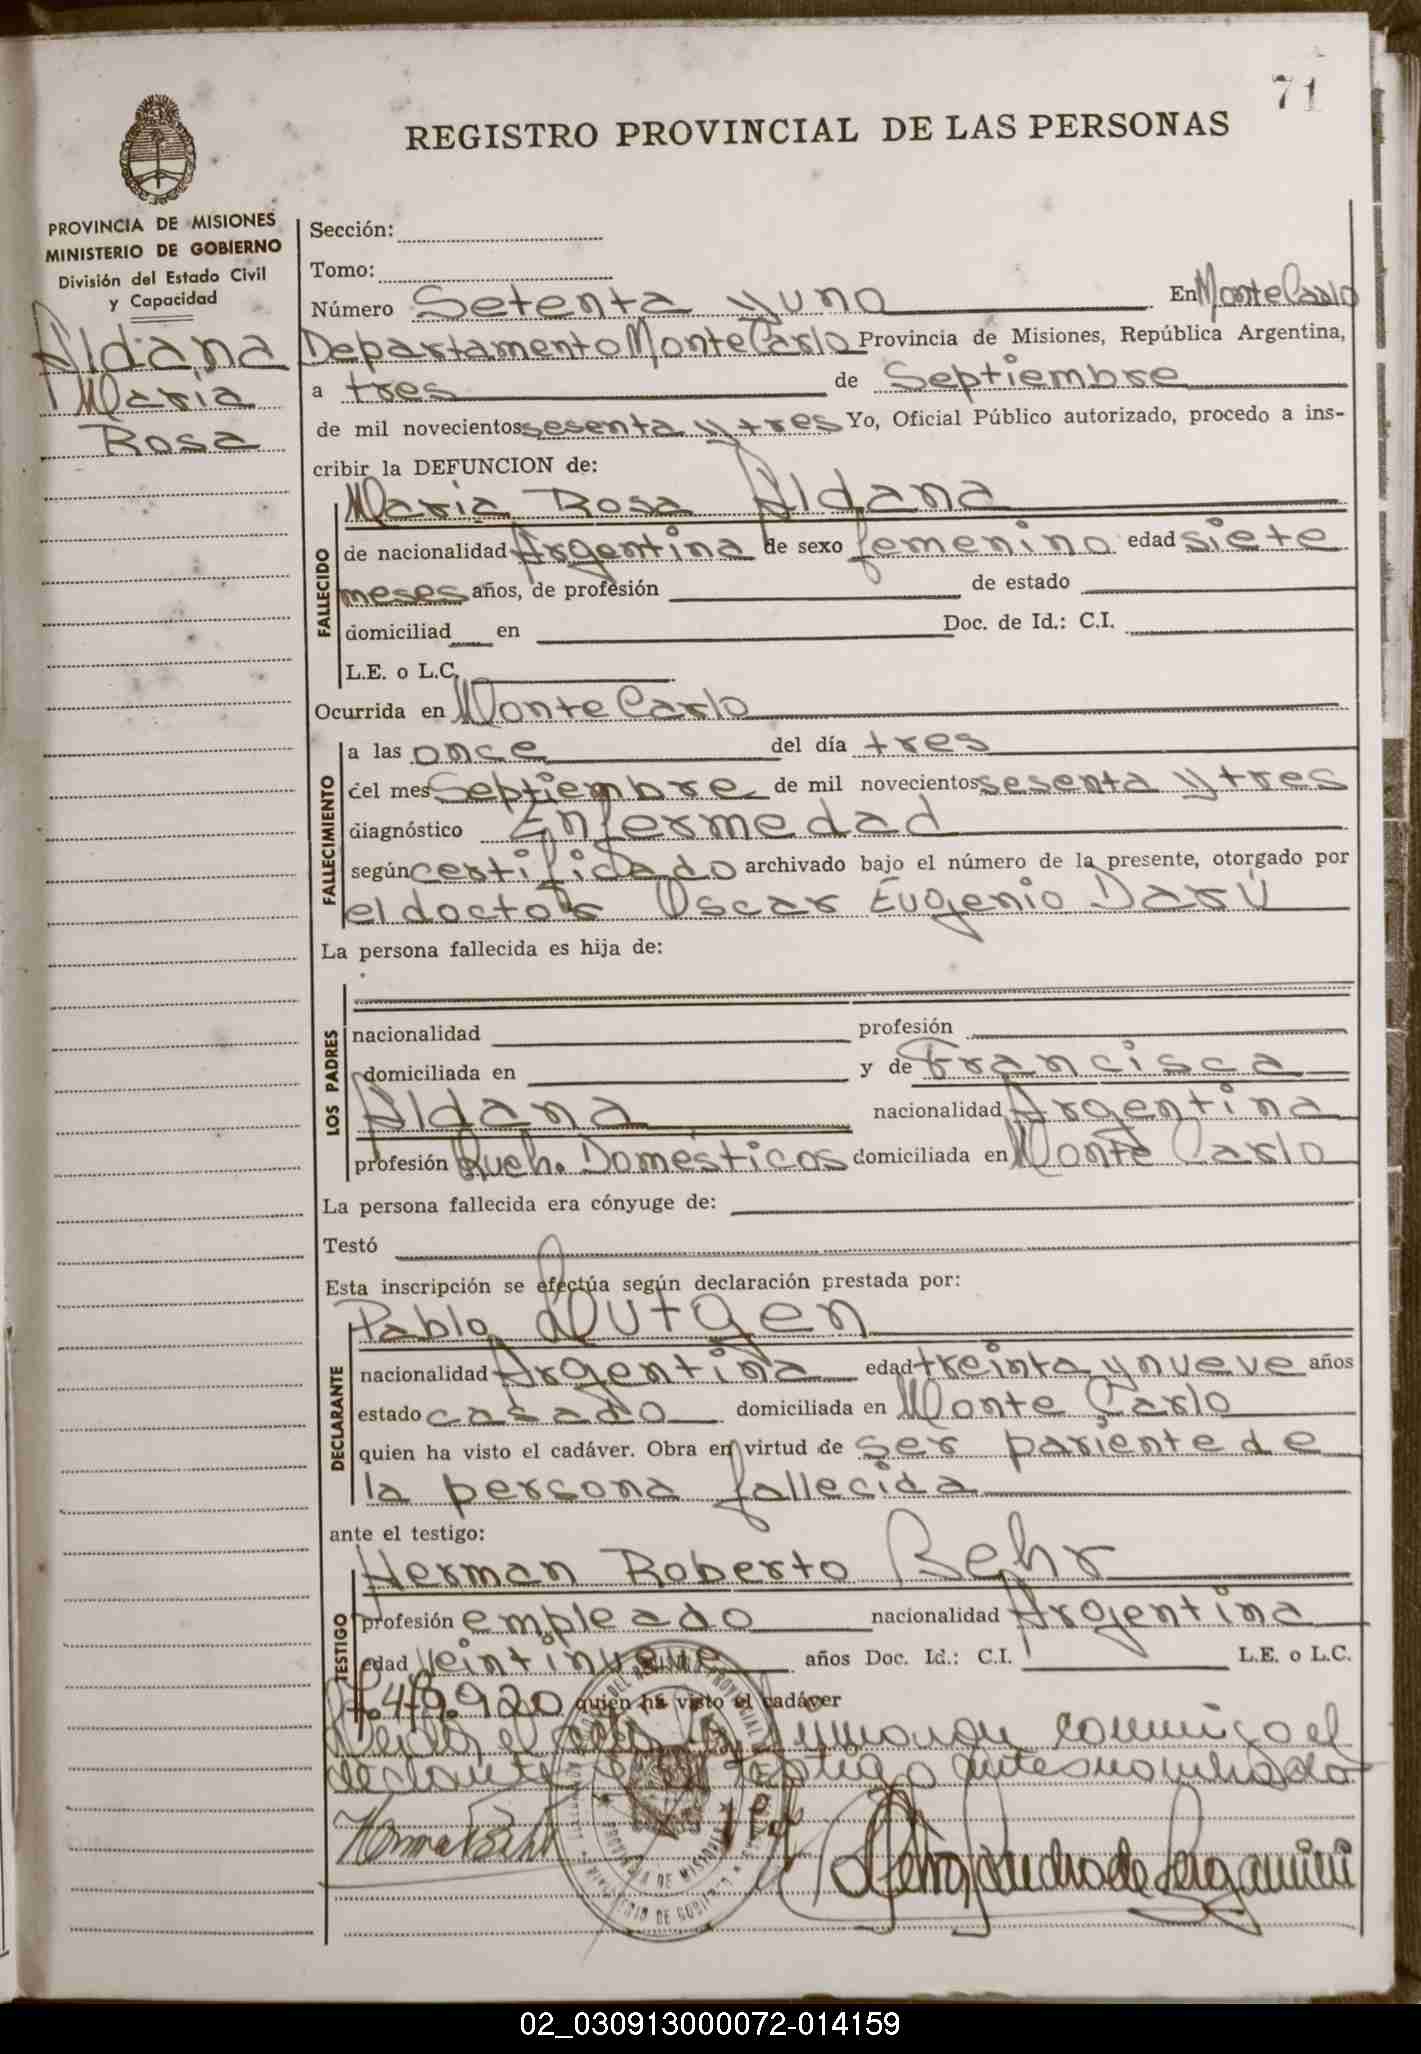 71
REGISTRO PROVINCIAL DE LAS PERSONAS
PROVINCIA DE MISIONES
MINISTERIO DE GOBIERNO
División del Estado Civil
y Capacidad
Aldana
Maria
Rosa
Sección:
Tomo:
Número Setenta y uno En Monte Carlo
Departamento Monte Carlo Provincia de Misiones, República Argentina,
a tres de Septiembre
de mil novecientos sesenta y tres Yo, Oficial Público autorizado, procedo a ins-
cribir la DEFUNCION de:
Maria Rosa Aldana
FALLECIDO
de nacionalidad Argentina de sexo femenino edad siete
meses años, de profesión de estado
domiciliad en Doc. de Id.: C.I.
L.E. o L.C.
Ocurrida en Monte Carlo
FALLECIMIENTO
a las once del día tres
del mes Septiembre de mil novecientos sesenta y tres
diagnóstico Enfermedad
según certificado archivado bajo el número de la presente, otorgado por
el doctor Oscar Eugenio Darú
La persona fallecida es hija de:
LOS PADRES
nacionalidad profesión
domiciliada en y de Francisca
Aldana nacionalidad Argentina
profesión Queh. Domésticos domiciliada en Monte Carlo
La persona fallecida era cónyuge de:
Testó
Esta inscripción se efectúa según declaración prestada por:
Pablo
DECLARANTE
nacionalidad Argentina edad treinta y nueve años
estado casado domiciliada en Monte Carlo
quien ha visto el cadáver. Obra en virtud de ser pariente de
la persona fallecida
ante el testigo:
Herman Roberto Behr
TESTIGO
profesión empleado nacionalidad Argentina
edad veintinueve años Doc. Id.: C.I. L.E. o L.C.
7.419.920 quien ha visto el cadáver
Leida el acta la firman conmigo el
declarante y el testigo antesnombrado
PROVINCIA DE MISIONES
MINISTERIO DE GOBIERNO
02_030913000072-014159